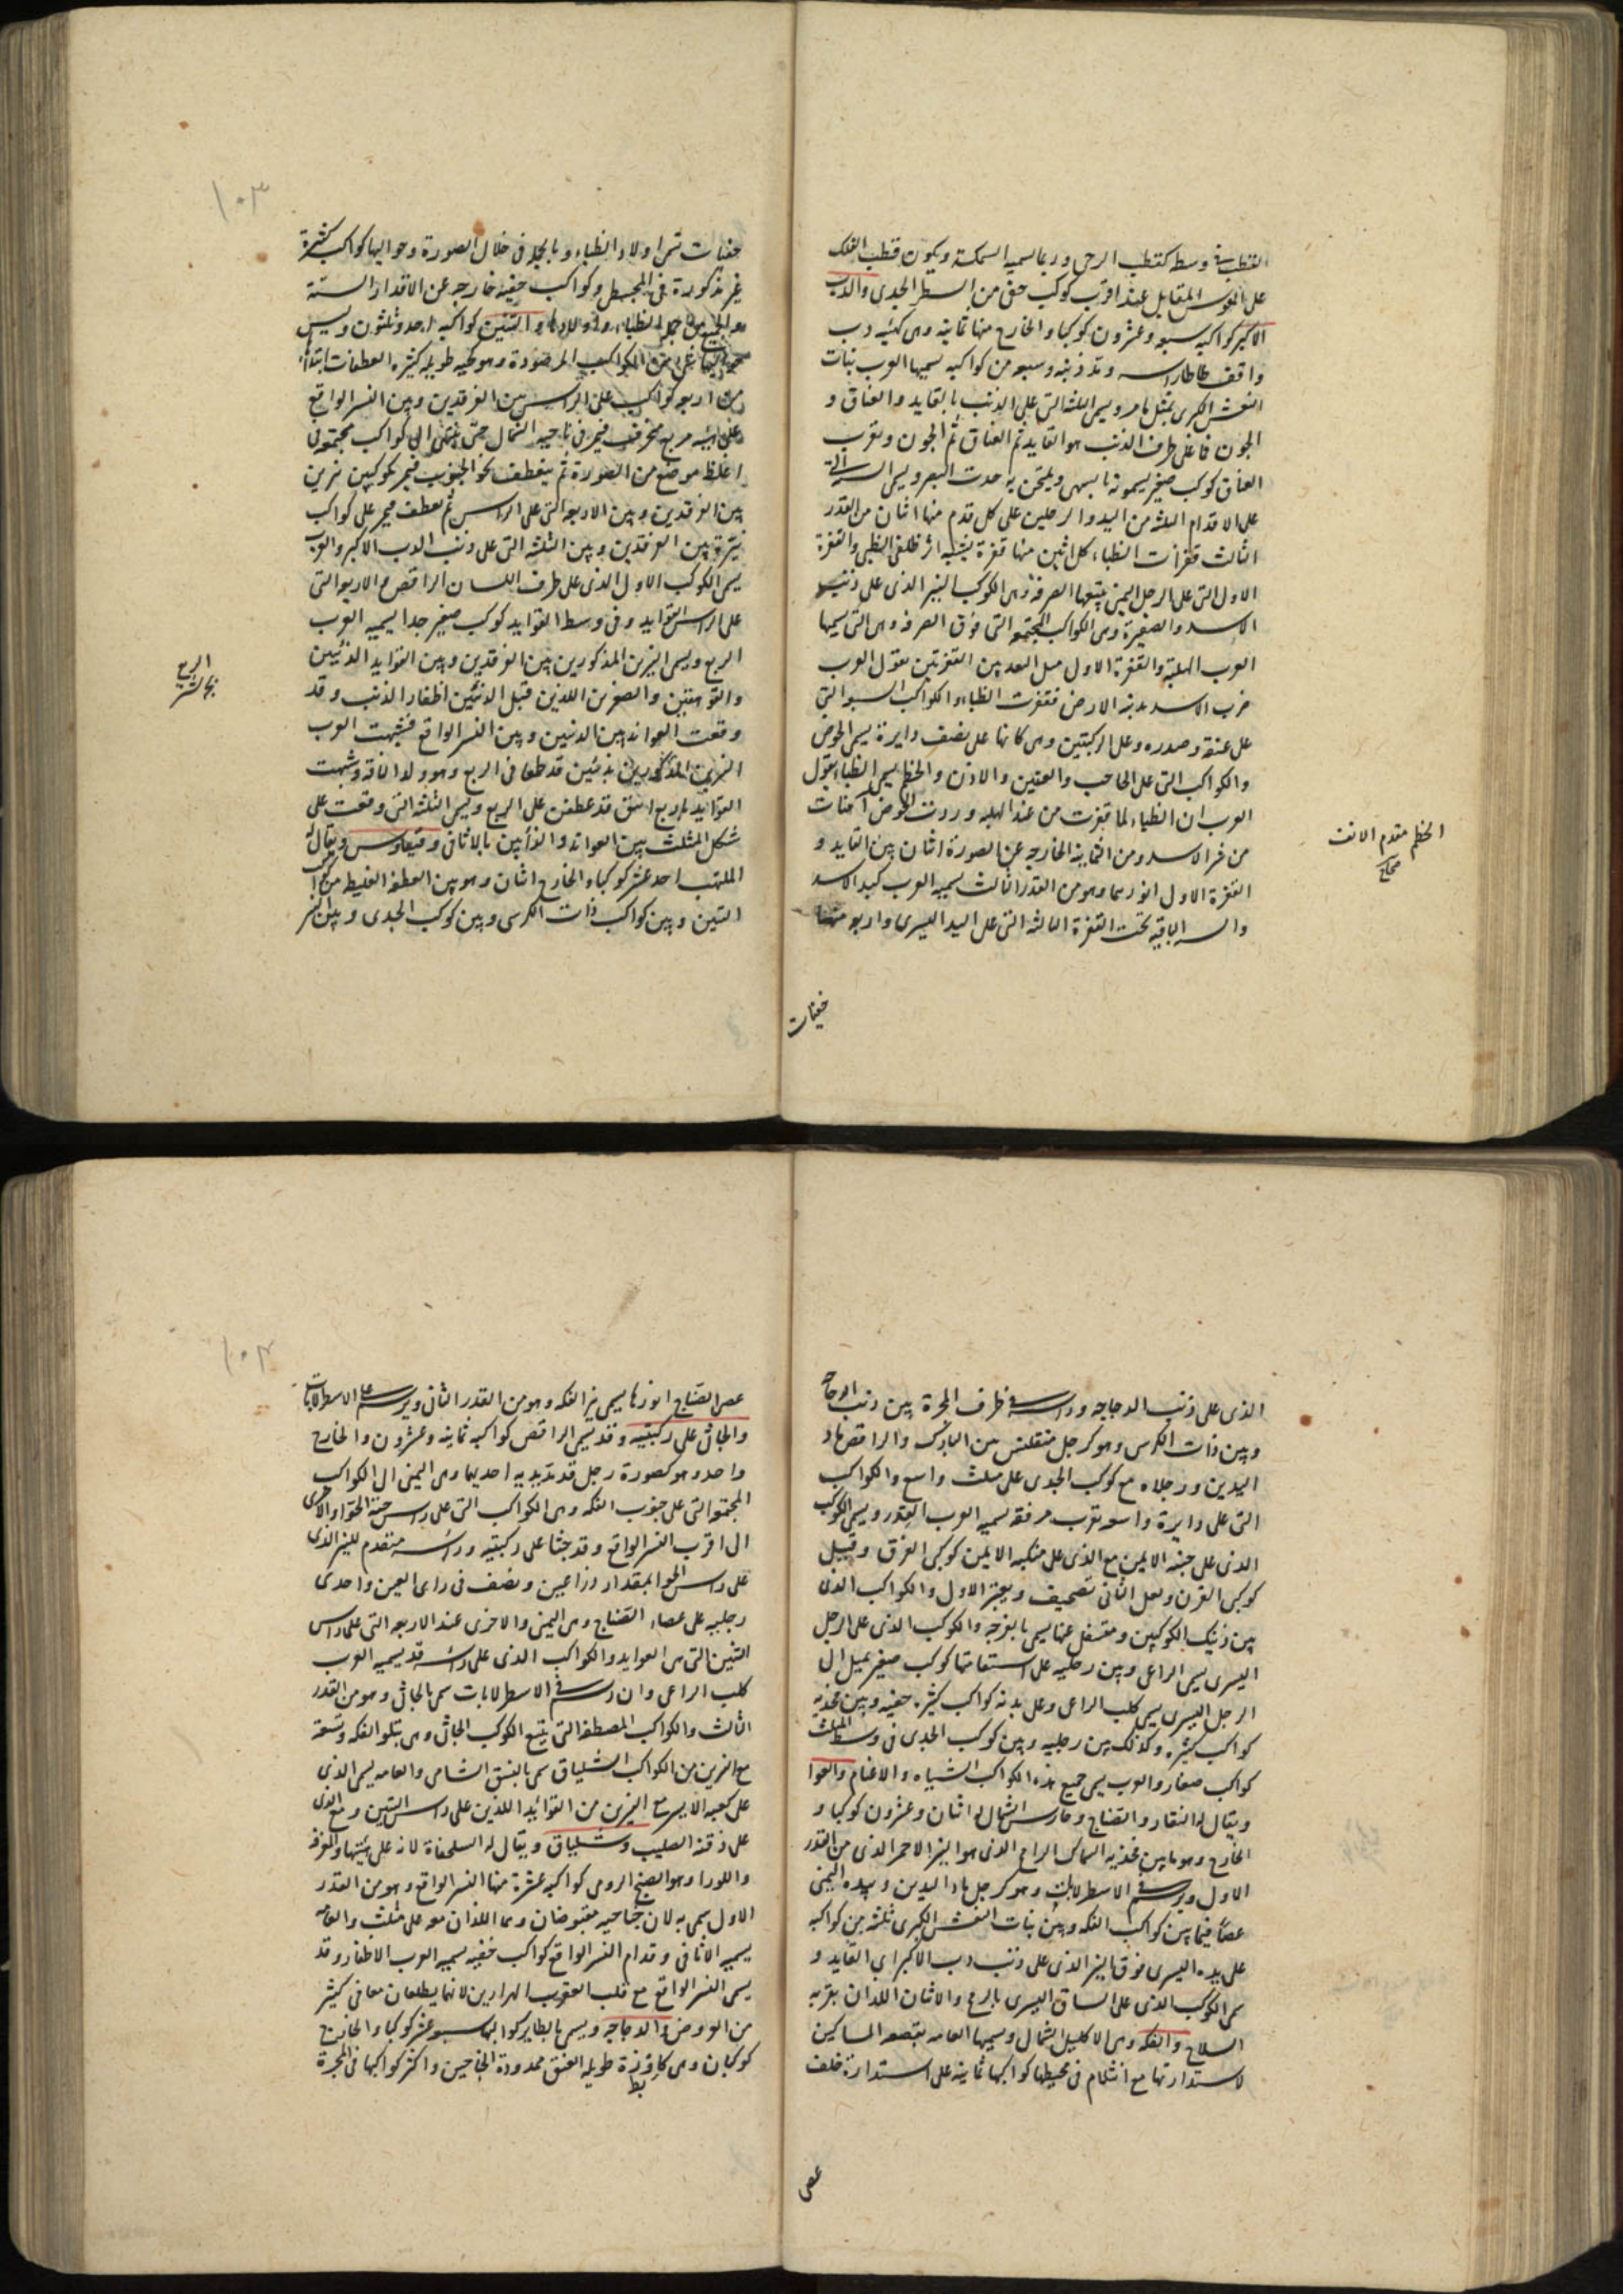 القطب فى وسطه كقطب الرحى وربما يسميه السمكة ويكون قطب الفلك
على القوس المقابل عند اقرب كوكب خفى من السطر الى الجدى والدب
الاكبر كواكبه سبعة وعشرون كوكبا والخارج منها ثمانية وهى كهيئة دب
واقف طاطا راسه ومد ذنبه وسبعة من كواكبه يسميها العرب بنات
النعش الكبرى بمثل ما مر ويسمى الثلثة التى على الذنب بالقايد والعناق و
الجون فما على طرف الذنب هو القايد ثم العناق ثم الجون وبقرب
العناق كوكب صغير يسمونه بالسهى ويمتحن به حدة البصر ويسمى الستة التى
على الاقدام الثلثة من اليد والرجلين على كل قدم منها اثنان من القدر
الثالث قفزات الظباء كل اثنين منها قفزة يشبه اثر ظلفى الظبى والقفزة
الاولى التى على الرجل اليمنى يتبعها الصرفة وهى الكوكب النير الذى على ذنب
الاسد والصغيرة وهى الكواكب المجتمعة التى فوق الصرفة وهى التى يسميها
العرب الهلبة والقفزة الاولى مثل البعد بين القفزتين يقول العرب
ضرب الاسد بذنبه الارض فقفزت الظباء والكواكب السبعة التى
على عنقه وصدره وعلى الركبتين وهى كانها على نصف دايرة يسمى الحوض
والكواكب التى على الحاجب والعينين والاذن والخطم يسمى الظباء يقول
العرب ان الظباء لما قفزت من عند الهلبة وردت الحوض آمنات
من شر الاسد ومن الثمانية الخارجة عن الصورة اثنان بين القايد و
القفزة الاولى انورهما وهو من القدر الثالث يسميه العرب كبد الاسد
والستة الباقية تحت القفزة الثالثة التى على اليد اليسرى واربعة منها
خفيات
الخطم مقدم الانف
صحاح
خفيات تسمى اولاد الظباء وبالجملة فى خلال الصورة وحواليها كواكب كثيرة
غير مذكورة فى المجسطى وكواكب خفية خارجة عن الاقدار الستة
والجميع من جملة الظباء واولادها والتنين كواكبه احد وثلثون وليس
حواليها شئ من الكواكب المرصودة وهو كحية طويلة كثيرة العطفات ابتداؤه
من اربعة كواكب على الراس بين الفرقدين وبين النسر الواقع
على هيئة مربع منحرف فيمر فى ناحية الشمال حتى ينتهى الى كواكب مجتمعة فى
اغلظ موضع من الصورة ثم ينعطف نحو الجنوب فيمر بكوكبين نيرين
بين الفرقدين وبين الاربعة التى على الراس ثم ينعطف فيمر على كواكب
نيرة بين الفرقدين وبين الثلثة التى على ذنب الدب الاكبر والعرب
يسمى الكوكب الاول الذى على طرف اللسان الراقص والاربعة التى
على الراس العوايد وفى وسط العوايد كوكب صغير جدا يسميه العرب
الربع ويسمى النيرين المذكورين بين الفرقدين وبين العوايد الذئبين
والعوهقين والصغيرين اللذين قبل الذئبين اظفار الذئب وقد
وقعت العوايد بين الذئبين وبين النسر الواقع فشبهت العرب
النيرين المذكورين بذئبين قد طمعا فى الربع وهو ولد الناقة وشبهت
العوايد باربع اينق قد عطفن على الربع ويسمى الثلثة التى وقعت على
شكل المثلث بين العوايد والذئبين بالاثافى وقيفاوس ويقال له
الملتهب احد عشر كوكبا والخارج اثنان وهو بين العطفة الغليظة من
التنين وبين كواكب ذات الكرسى وبين كوكب الجدى وبين النير
الربع
بحاشية
١٠٣
الذى على ذنب الدجاجة وراسه فى طرف المجرة بين ذنب الدجاجة
وبين ذات الكرسى وهو كرجل متقلنس بين البارك والراقص ماد
اليدين ورجلاه مع كوكب الجدى على مثلث واسع والكواكب
التى على دايرة واسعة بقرب مرفقه يسميه العرب القدر ويسمى الكوكب
الذى على جنبه الايمن مع الذى على منكبه الايمن كوكبى الفرق وقيل
كوكبى القرن ولعل الثانى تصحيف ويعتبر الاول والكواكب الذى
بين ذينك الكوكبين ومتسفل عنهما يسمى بالفرجة والكوكب الذى على الرجل
اليسرى يسمى الراعى وبين رجليه على استقامتها كوكب صغير يميل الى
الرجل اليسرى يسمى كلب الراعى وعلى بدنه كواكب كثيرة خفية وبين فخذيه
كواكب كثيرة وكذلك بين رجليه وبين كوكب الجدى فى وسط المثلث
كواكب صغار والعرب يسمى جميع هذه الكواكب الشياه والاغنام والعوا
ويقال له النقار والصناج وحارس الشمال اثنان وعشرون كوكبا و
الخارج وهو ما بين فخذيه السماك الرامح الذى هو النير الاحمر الذى من القدر
الاول ويرسم فى الاسطرلابات وهو كرجل ماد اليدين وبيده اليمنى
عصا فيما بين كواكب الفكة وبين بنات النعش الكبرى ثلثة من كواكبه
على يده اليسرى فوق النير الذى على ذنب دب الاكبر اى القايد و
يسمى الكوكب الذى على الساق اليسرى بالرمح والاثنان اللذان بقربه
السلاح والفكة وهى الاكليل الشمالى ويسميها العامة بقصعة المساكين
لاستدارتها مع انثلام فى محيطها كواكبها ثمانية على استدارة خلف
عصى
عصى الصناج انورها يسمى نير الفكة وهو من القدر الثانى ويرسم على الاسطرلابات
والجاثى على ركبتيه وقد يسمى الراقص كواكبه ثمانية وعشرون والخارج
واحد وهو كصورة رجل قد مد يديه احديهما وهى اليمنى الى الكواكب
المجتمعة التى على جنوب الفكة وهى الكواكب التى على راس حية الحوا والاخرى
الى اقرب النسر الواقع وقد جثا على ركبتيه وراسه متقدم للنير الذى
على راس الحوا بمقدار ذراعين ونصف فى راى العين واحدى
رجليه على عصاء الصناج وهى اليمنى والاخرى عند الاربعة التى على راس
التنين التى هى العوايد والكواكب الذى على راسه قد يسميه العرب
كلب الراعى وان رسم فى الاسطرلابات سمى بالجاثى وهو من القدر
الثالث والكواكب المصطفة التى يتبع الكوكب الجاثى وهى يتلو الفكة وتسعة
مع النيرين من الكواكب الشلياق سمى بالنسق الشامى والعامة يسمى الذى
على كعبه الايسر مع النيرين من العوائد اللذين على راس التنين ومع الذى
على ذقنه الصليب وشلياق ويقال له السلحفاة لانه على هيئتها والمعزفة
واللورا وهو الصنج الرومى كواكبه عشرة منها النسر الواقع وهو من القدر
الاول سمى به لان جناحيه مقبوضان وهما اللذان معه على مثلث والعامة
يسميه الاثافى وقدام النسر الواقع كواكب خفية يسميه العرب الاظفار وقد
يسمى النسر الواقع مع قلب العقرب الهرارين لانهما يطلعان معا فى كثير
من العروض والدجاجة ويسمى بالطاير كواكبها سبعة عشر كوكبا والخارج
كوكبان وهى كاوزة طويلة العنق ممدودة الجناحين واكثر كواكبها فى المجرة
بط
١٠٤